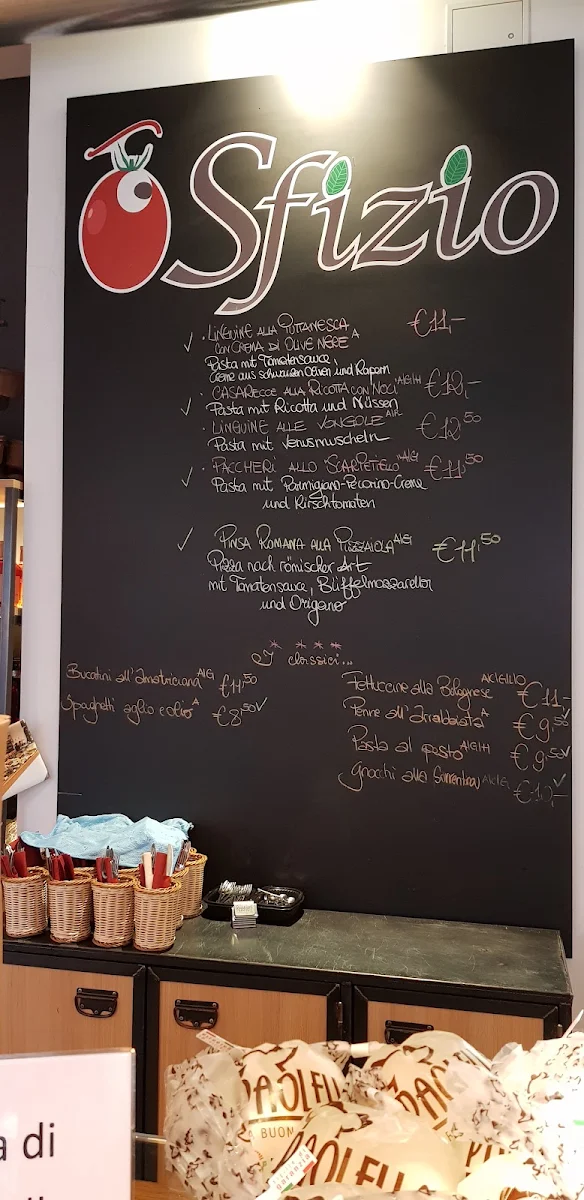 Sfizio
✓ · LINGUINE ALLA PUTTANESCA €11,-
CON CREMA DI OLIVE NERE A
Pasta mit Tomatensauce,
Creme aus schwarzen Oliven und Kapern
· CASARECCE ALLA RICOTTA CON NOCI A/G/H €12,-
✓ Pasta mit Ricotta und Nüssen
· LINGUINE ALLE VONGOLE A/R €12,50
Pasta mit Venusmuscheln
✓ · PACCHERI ALLO SCARPETIELLO A/G €11,50
Pasta mit Parmigiano-Pecorino-Creme
und Kirschtomaten
✓ PINSA ROMANA ALLA PIZZAIOLA A/G €11,50
Pizza nach römischer Art
mit Tomatensauce, Büffelmozzarella
und Origano
* * * *
I classici...
Bucatini all'Amatriciana A/G €11,50
Spaghetti aglio e olio A €8,50 ✓
Fettuccine alla Bolognese A/C/G/I/L/O €11,-
Penne all'Arrabbiata A €9,50 ✓
Pasta al pesto A/G/H €9,50 ✓
Gnocchi alla Sorrentina A/C/G €10,- ✓
PAOLELL
A BUON
PAOLELL
a di